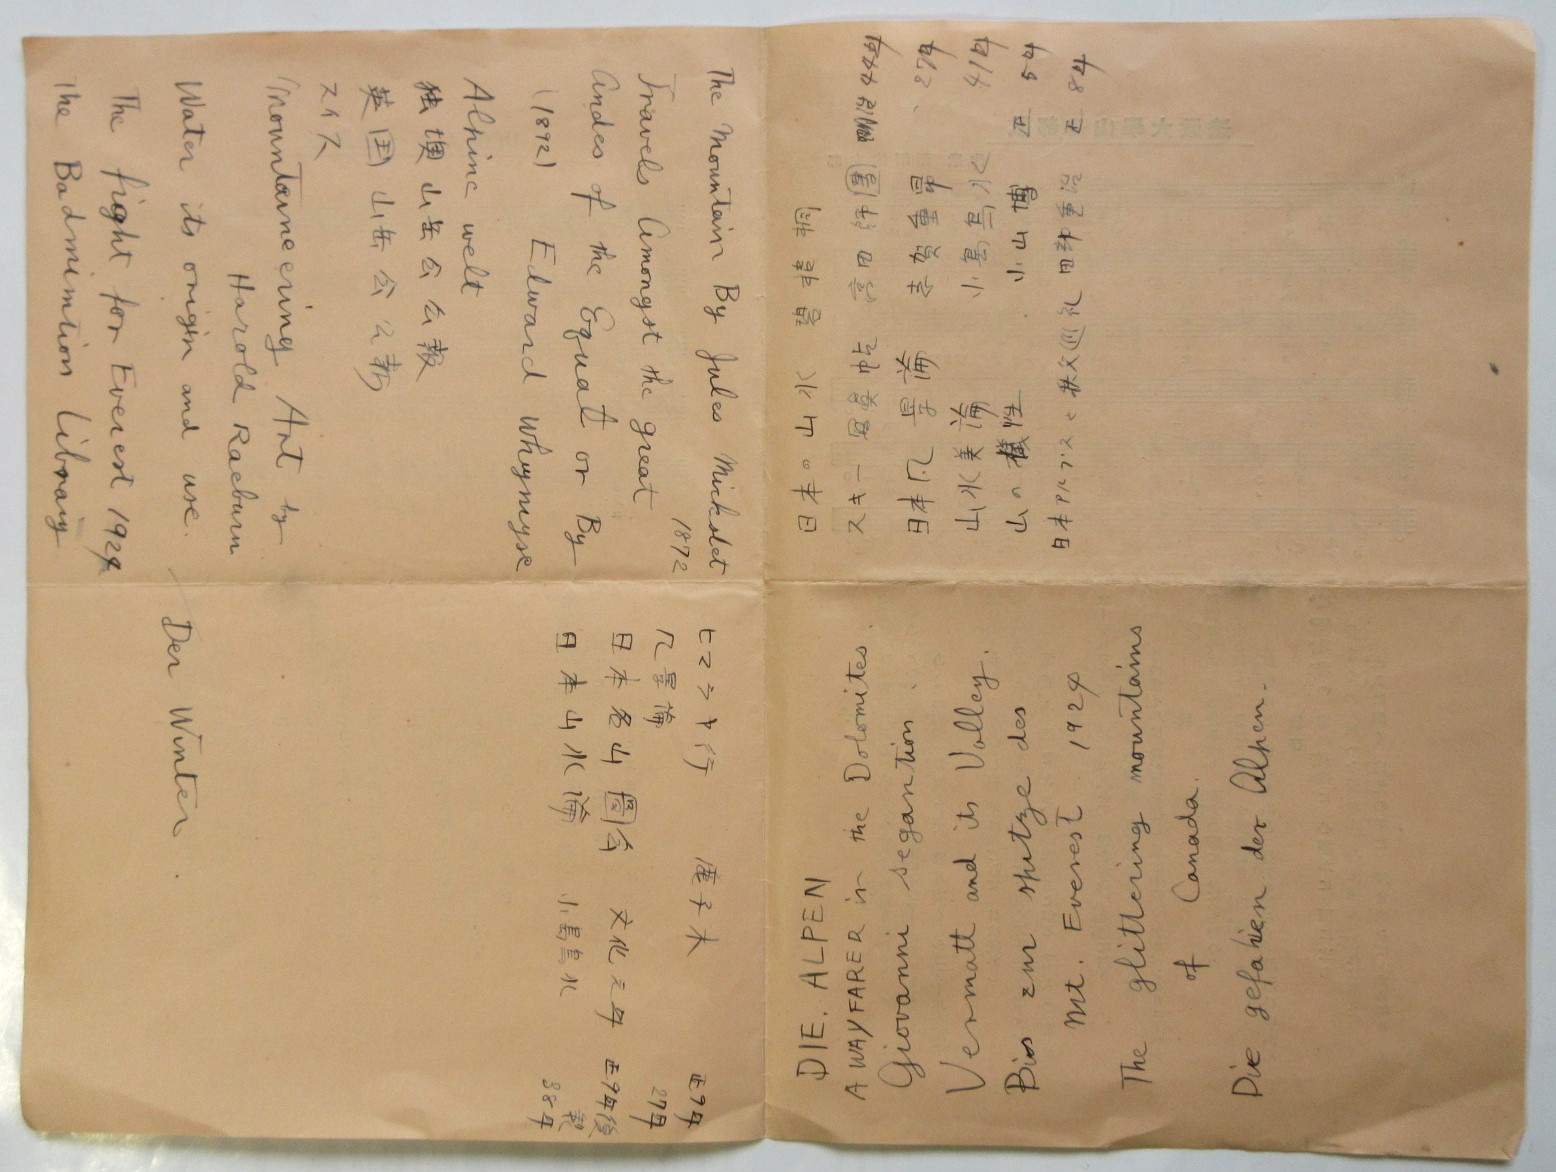 The Mountain By Jules Mickelet
1872
Travels Amongst the great
Andes of the Equator By
(1892) Edward Whymyse
Alpine welt
独墺山岳会会報
英国山岳会会報
スイス
Mountaineering Art by
Harold Raeburn
Water its origin and use.
The fight for Everest 1924
The Badmention Library
ヒマラヤ行 鹿子木 正9年
風景論 27年
日本名山圖会 文化元年 正9年後
日本山水論 小島烏水 38年
Der Winter.
日本の山水
スキー写真帖 高田師團
日本風景論 志賀重昂
山水美論 小島烏水 41年
山の 小山 正5年
日本アルプスと秩父巡礼 田部重治 正8年
DIE. ALPEN
A WAYFARER in the Dolomites.
Giovanni segantion.
Vermatt and its Valley.
Bios zur spitze des
Mt. Everest 1924
The glittering mountains
of Canada.
Die gefahien der Alpen.